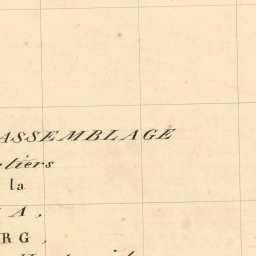 ASSEMBLAGE
tiers
la
A,
RG,